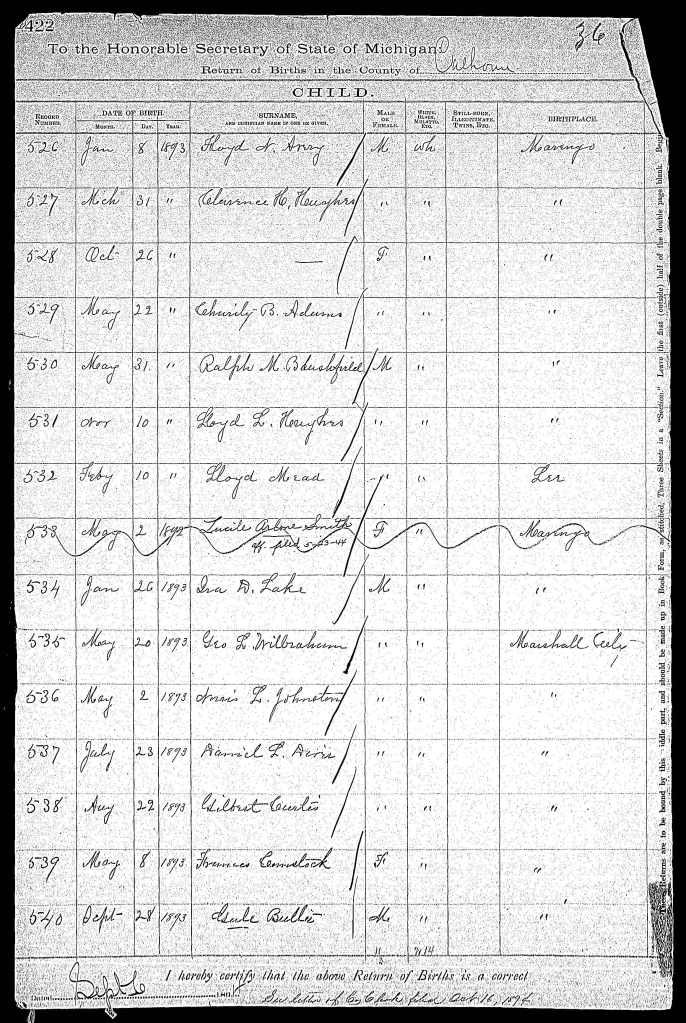 422
36
To the Honorable Secretary of State of Michigan:
Return of Births in the County of Calhoun
CHILD.
RECORD NUMBER. DATE OF BIRTH. MONTH. DAY. YEAR. SURNAME, AND CHRISTIAN NAME IF ONE IS GIVEN. MALE OR FEMALE. WHITE, BLACK, MULATTO, ETC. STILL-BORN, ILLEGITIMATE, TWINS, ETC. BIRTHPLACE.
526 Jan 8 1893 Floyd N. Avery M Wh Marengo
527 Mch 31 " Clarence H. Heughes " " "
528 Oct 26 " — F " "
529 May 22 " B. Adams " " "
530 May 31 " Ralph M. Blushfield M " "
531 Nov 10 " Lloyd L. Heughes " " "
532 Feby 10 " Lloyd Mead " " Lee
533 May 2 1892 Lucile Arlone Smith F " Marengo
aff. filed 5-23-44
534 Jan 26 1893 Ira D. Lake M " "
535 May 20 1893 Geo L. Wilbraham " " Marshall City
536 May 2 1893 Norris L. Johnston " " "
537 July 23 1893 Daniel L. Davis " " "
538 Aug 22 1893 Gilbert Curtis " " "
539 May 8 1893 Frances Comstock F " "
540 Sept 28 1893 Bullis M " "
I hereby certify that the above Return of Births is a correct
Dated Sept 6 189
See letter of Co Clerk filed Oct 16, 1894
The Returns are to be bound by this middle part, and should be made up in Book Form, as stitched. Three Sheets in a "Section." Leave the first (outside) half of the double page blank.